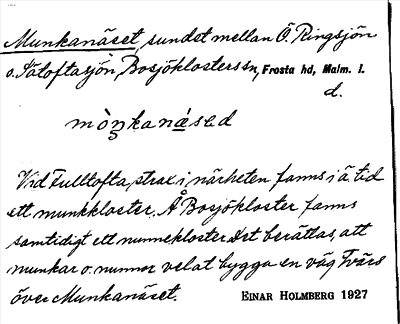 Munkanäset, sundet mellan Ö. Ringsjön
o. Sätoftasjön, Bosjöklosters sn, Frosta hd, Malm. l.
d.
mòŋkanásəd
Vid Fulltofta, strax i närheten fanns i ä. tid
ett munkkloster. Å Bosjökloster fanns
samtidigt ett nunnekloster. Det berättas, att
munkar o. nunnor velat bygga en väg tvärs
över Munkanäset. EINAR HOLMBERG 1927